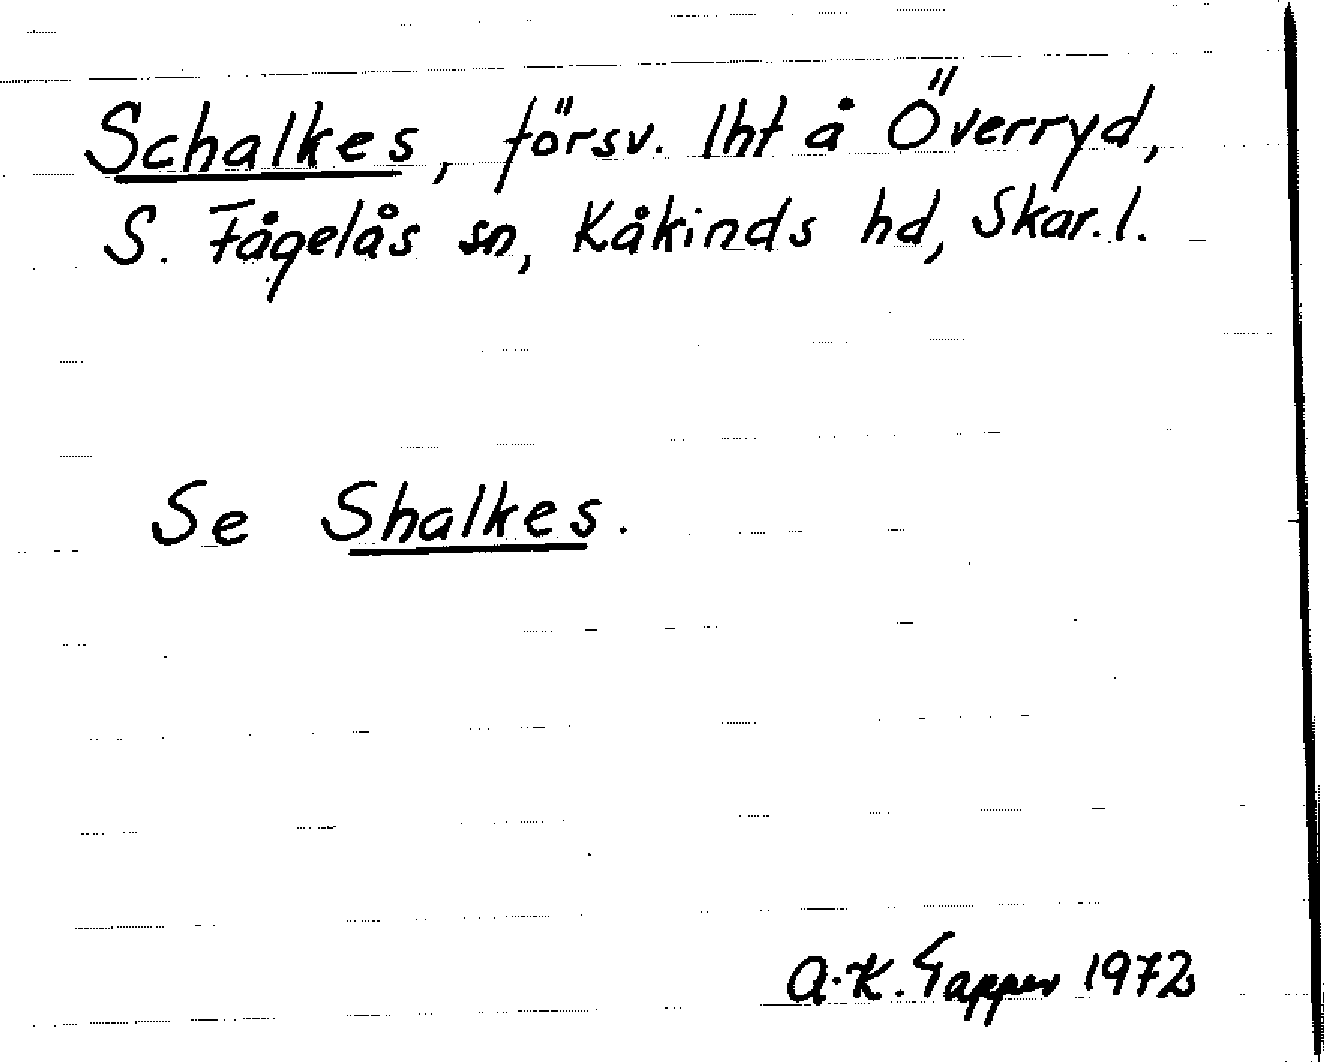 Schalkes, försv. lht å Överryd,
S. Fågelås sn, Kåkinds hd, Skar. l.
Se Shalkes.
A.-K. Tapper 1972